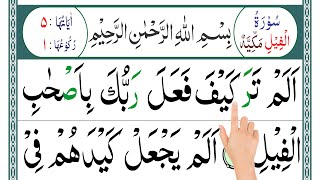 سُوْرَةُ الْفِيْلِ مَكِّيَّةٌ
بِسْمِ اللّٰهِ الرَّحْمٰنِ الرَّحِيْمِ
اٰيَاتُهَا ٥
رُكُوْعُهَا ١
اَلَمْ تَرَ كَيْفَ فَعَلَ رَبُّكَ بِاَصْحٰبِ
الْفِيْلِ اَلَمْ يَجْعَلْ كَيْدَهُمْ فِيْ